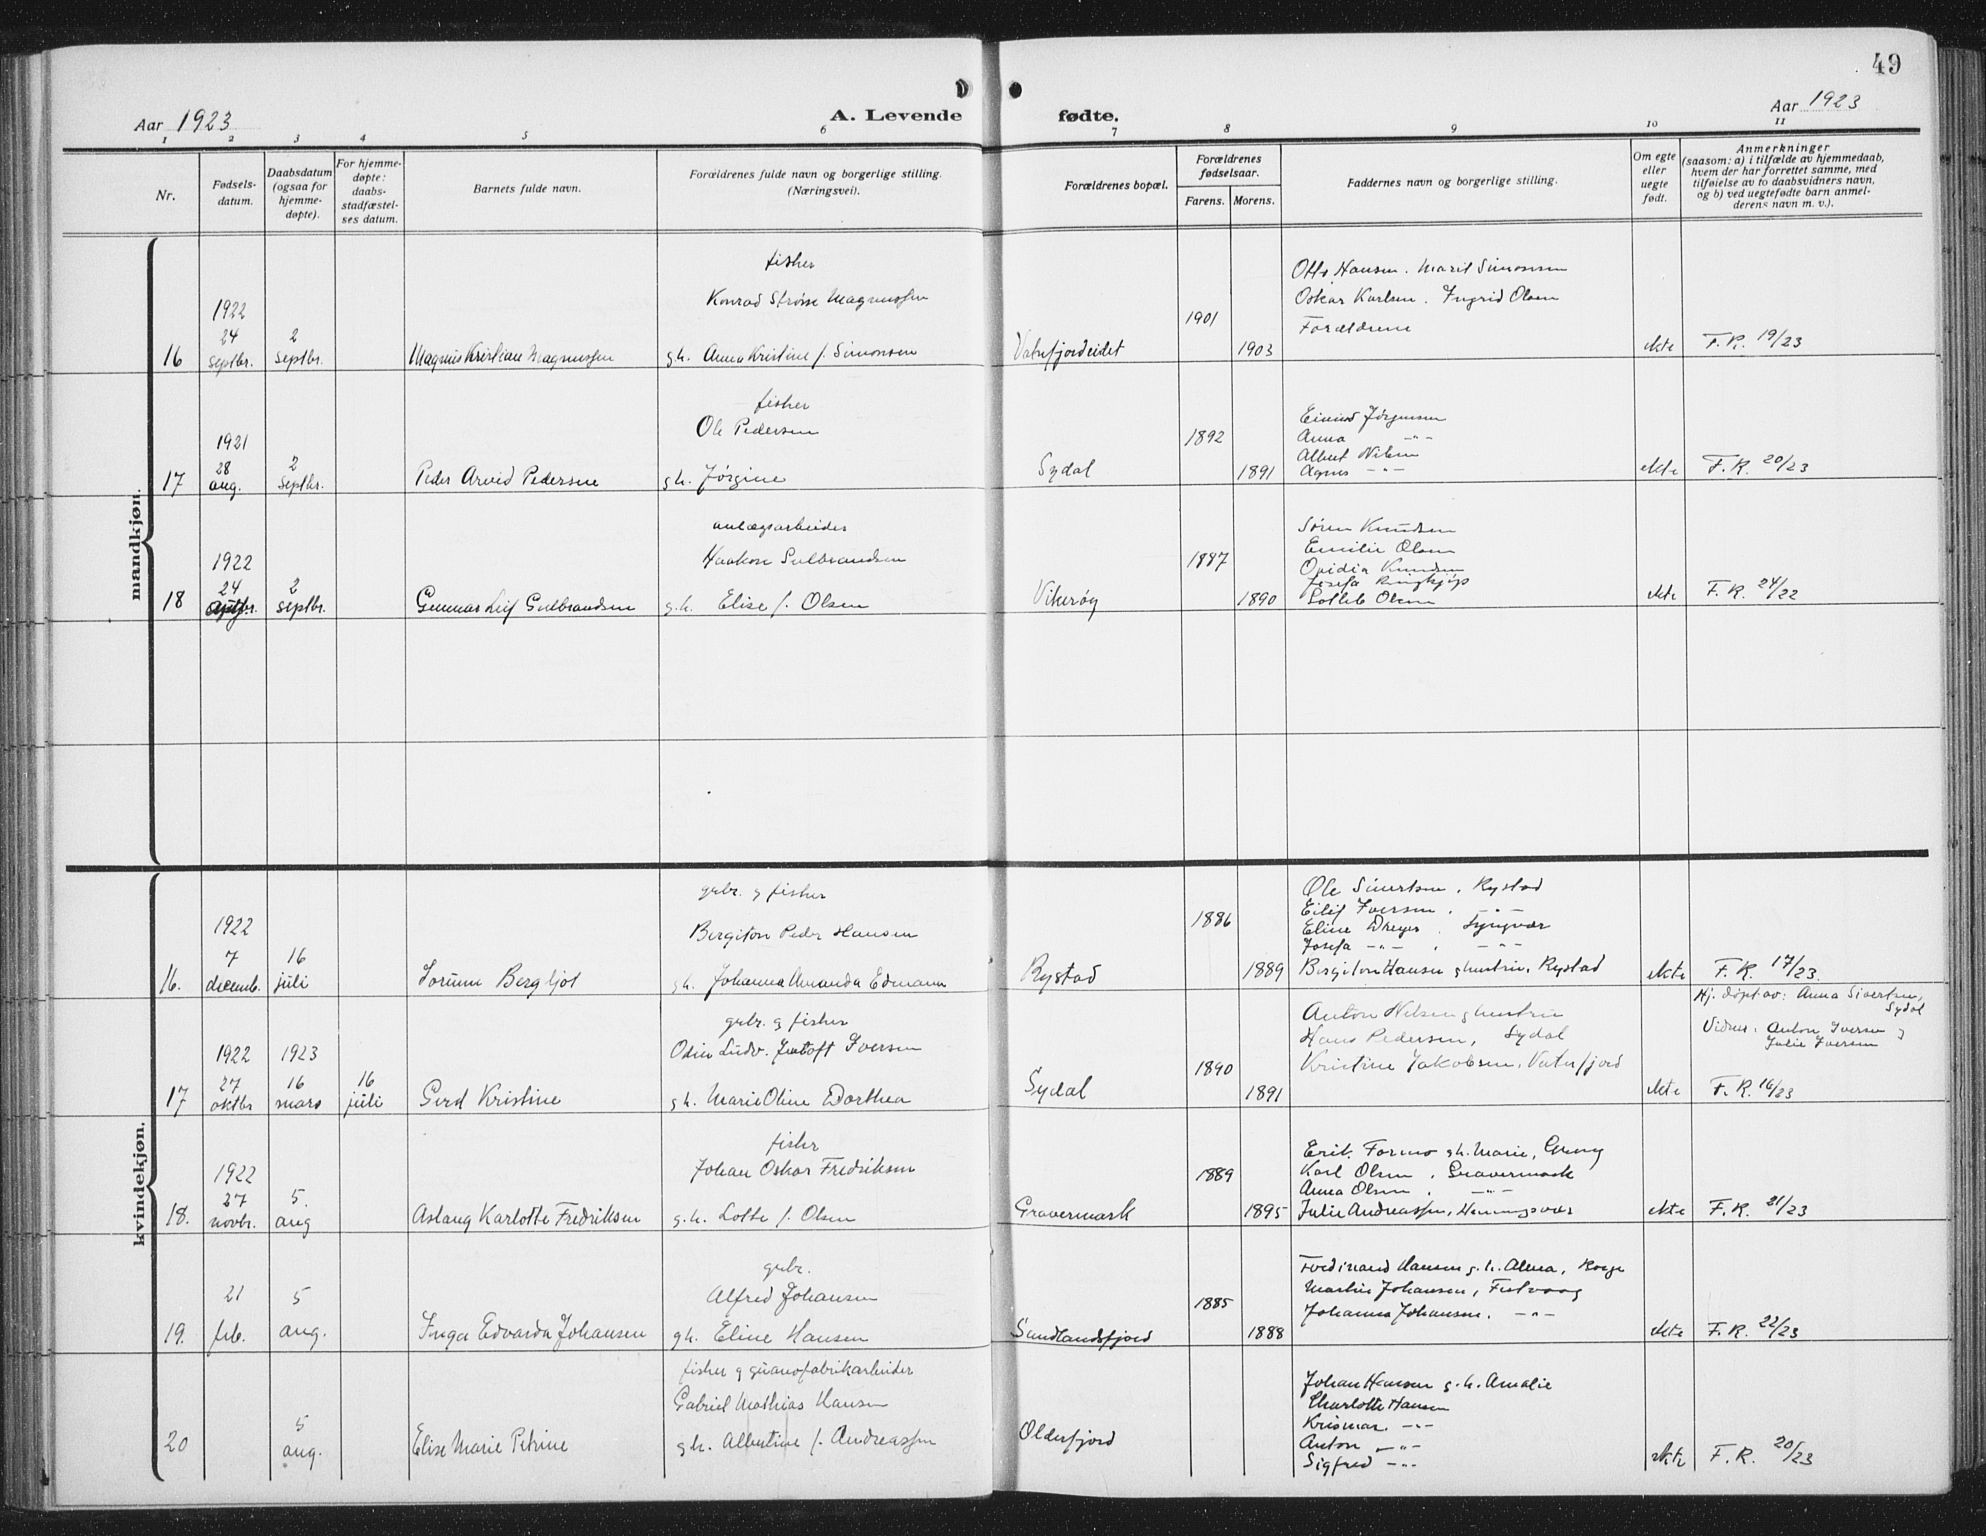 49
Aar 1923
A. Levende
fødte.
Aar 1923
1 2 3 4 5 6 7 8 9 10 11
Nr.
Fødsels-
datum.
Daabsdatum
(ogsaa for
hjemme-
døpte).
For hjemme-
døpte:
daabs-
stadfæstel-
ses datum.
Barnets fulde navn.
Forældrenes fulde navn og borgerlige stilling.
(Næringsvei).
Forældrenes bopæl.
Forældrenes
fødselsaar.
Farens. Morens.
Faddernes navn og borgerlige stilling.
Om egte
eller
uegte
født.
Anmerkninger
(saasom: a) i tilfælde av hjemmedaab,
hvem der har forrettet samme, med
tilføielse av to daabsvidners navn,
og b) ved uegtefødte barn anmel-
derens navn m. v.).
mandkjøn.
16
1922
24
septbr.
2
septbr.
Magnus Kristian Magnussen
fisker
Konrad Strøm Magnussen
g.h. Anna Kristine f. Simonsen
Vatnfjordeidet
1901
1903
Otto Hansen. Marit Simonsen
Oskar Karlsen. Ingrid Olsen
Forældrene
ekte
F. R. 19/23
17
1921
28
aug.
2
septbr.
Peder Arvid Pedersen
fisker
Ole Pedersen
g.h. Jørgine
Sydal
1892
1891
Einard Jørgensen
Anna -"-
Albert Nilsen
Agnes -"-
ekte
F. R. 20/23
18
1922
24
septbr.
2
septbr.
Gunnar Leif Gulbrandsen
anlægsarbeider
Haakon Gulbrandsen
g.h. Elise f. Olsen
Vikerøy
1887
1890
Søren Knudsen
Emilie Olsen
Ovidia Knudsen
Josefa Ringkjøp
Gotleb Olsen
ekte
F. R. 24/22
kvindekjøn.
16.
1922
7
decemb.
16
juli
Torunn Bergljot
grbr. og fisker
Bergiton Peder Hansen
g.h. Johanna Amanda Edmana
Rystad
1886
1889
Ole Sivertsen, Rystad
Eilif Iversen, -"-
Eline Dreyer, Lyngvær
Josefa -"-, -"-
Bergiton Hansen g hustru, Rystad
ekte
F. R. 17/23.
17
1922
27
oktbr
1923
16
mars
16
juli
Gerd Kristine
grbr. og fisker
Odin Ludv. Jentoft Iversen
g.h. Marie Oline Dorthea
Sydal
1890
1891
Anton Nilsen g hustru
Hans Pedersen, Sydal
Kristine Jakobsen, Vatnfjord
ekte
Hj. døpt av: Anna Sivertsen,
Sydal
Vidner: Anton Iversen og
Julie Iversen
F. R. 16/23
18.
1922
27
novbr.
5
aug
Aslaug Karlotte Fredriksen
fisker
Johan Oskar Fredriksen
g.h. Lotte f. Olsen
Gravermark
1889
1895
Erik Formo g.h. Marie,
Karl Olsen, Gravermark
Anna Olsen, -"-
Julie Andreassen, Henningsvær
ekte
F. R. 21/23
19.
21
feb.
5
aug.
Inga Edvarda Johansen
grbr.
Alfred Johansen
g.h. Eline Hansen
Sandlandsfjord
1885
1888
Ferdinand Hansen g.h. Alma,
Martin Johansen, Festvaag
Johanna Johansen, -"-
ekte
F. R. 22/23
20
5
aug.
Elise Marie Petrine
fisker og guanofabrikarbeider
Gabriel Mathias Hansen
g.h. Albertine f. Andreassen
Olderfjord
Johan Hansen g.h. Amalie
Charlotte Hansen
Krismar -"-
Anton -"-
Sigfred -"-
ekte
F. R. 20/23